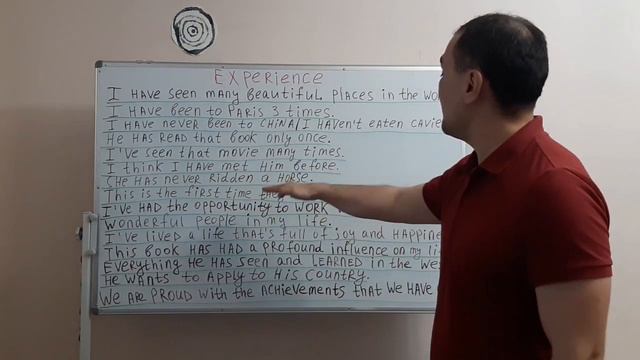 EXPERIENCE
I HAVE SEEN MANY BEAUTIFUL PLACES IN THE
I HAVE BEEN TO PARIS 3 TIMES.
I HAVE NEVER BEEN TO CHINA/I HAVEN'T EATEN CAVIE
HE HAS READ THAT BOOK ONLY ONCE.
I'VE SEEN THAT MOVIE MANY TIMES.
I THINK I HAVE MET HIM BEFORE.
SHE HAS NEVER RIDDEN A HORSE.
THIS IS THE FIRST TIME
I'VE HAD THE OPPORTUNITY TO WORK
WONDERFUL PEOPLE IN MY LIFE
I'VE LIVED A LIFE THAT'S FULL OF JOY AND HAPPINE
THIS BOOK HAS HAD A PROFOUND INFLUENCE ON MY LI
EVERYTHING HE HAS SEEN AND LEARNED IN THE WES
HE WANTS TO APPLY TO HIS COUNTRY.
WE ARE PROUD WITH THE ACHIEVEMENTS THAT WE HAVE